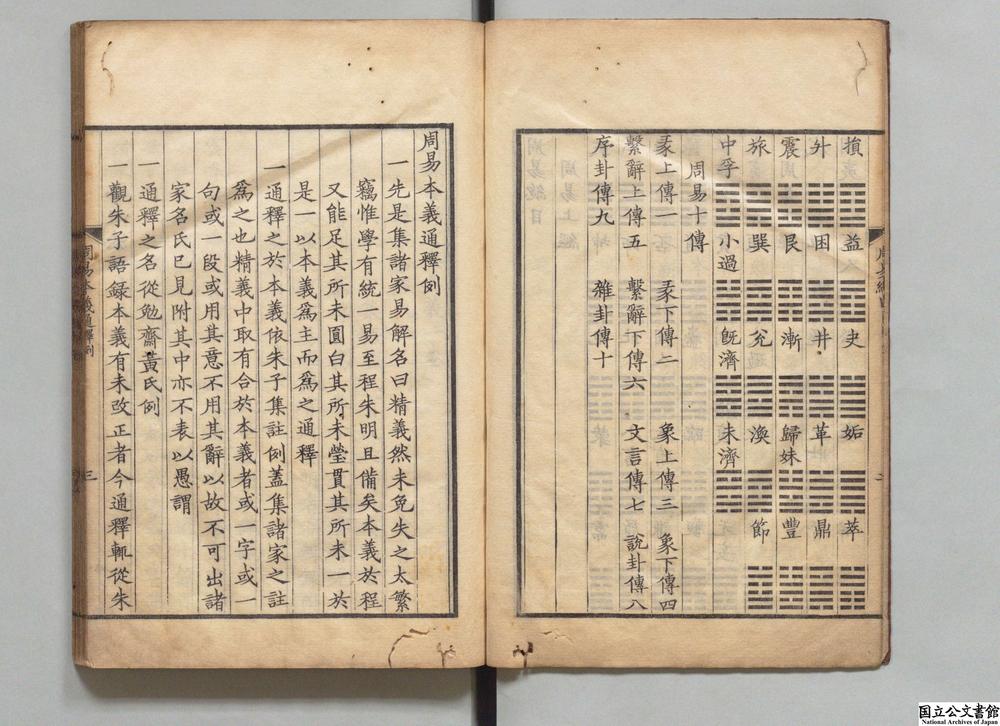 損 益 夬 姤 萃
升 困 井 革 鼎
震 艮 漸 歸妹 豐
旅 巽 兊 渙 節
中孚 小過 旣濟 未濟
周易十傳
彖上傳一 彖下傳二 象上傳三 象下傳四
繫辭上傳五 繫辭下傳六 文言傳七 說卦傳八
序卦傳九 雜卦傳十
周易本義通釋例
一先是集諸家易解名曰精義然未免失之太繁
竊惟學有統一易至程朱明且備矣本義於程
又能足其所未圓白其所未瑩貫其所未一於
是一以本義爲主而爲之通釋
一通釋之於本義依朱子集註例蓋集諸家之註
爲之也精義中取有合於本義者或一字或一
句或一段或用其意不用其辭以故不可出諸
家名氏已見附其中亦不表以愚謂
一通釋之名從勉齋黃氏例
一觀朱子語録本義有未改正者今通釋輒從朱
周易本義通釋例
三
国立公文書館
National Archives of Japan